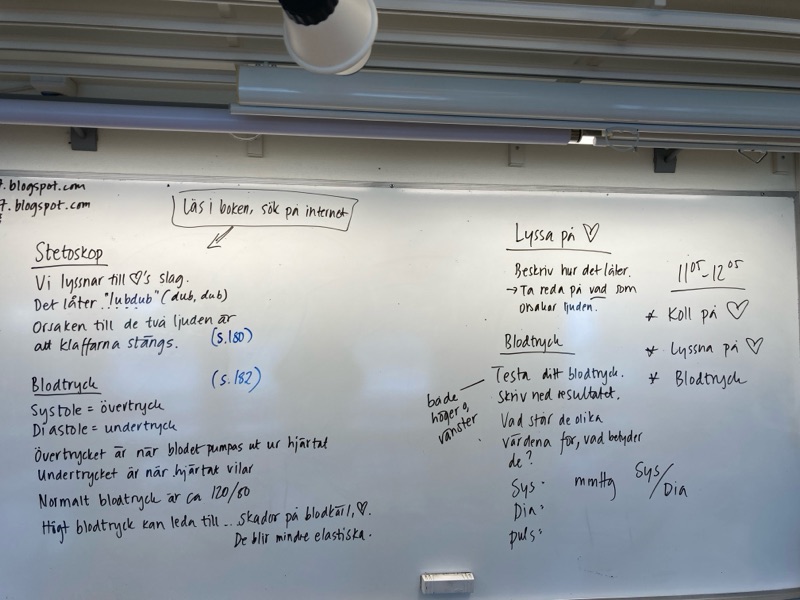 7.blogspot.com
7.blogspot.com
Läs i boken, sök på internet
Stetoskop
Vi lyssnar till ♡'s slag.
Det låter "lubdub" (dub, dub)
Orsaken till de två ljuden är
att klaffarna stängs. (s.180)
Blodtryck (s.182)
Systole = övertryck
Diastole = undertryck
Övertrycket är när blodet pumpas ut ur hjärtat
Undertrycket är när hjärtat vilar
Normalt blodtryck är ca 120/80
Högt blodtryck kan leda till... skador på blodkärl, ♡.
De blir mindre elastiska.
Lyssa på ♡
Beskriv hur det låter.
→ Ta reda på vad som
orsakar ljuden.
Blodtryck
Testa ditt blodtryck.
skriv ned resultatet.
både
höger o,
vänster
Vad står de olika
värdena för, vad betyder
de?
Sys:
Dia:
puls:
mmHg
Sys/Dia
11 05 - 12 05
* Koll på ♡
* Lyssna på ♡
* Blodtryck